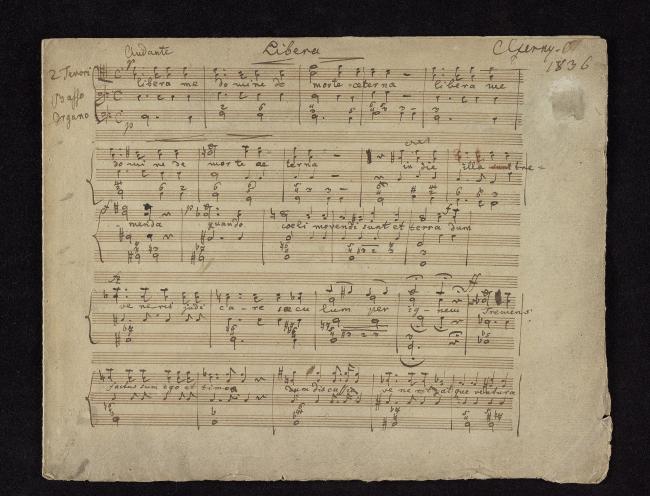 Andante Libera C Czerny
1836
2 Tenori
Basso
Organo
p
libera me domine de morte aeterna libera me
p
cres
domine de morte aeterna in die illa tre=
f p f
menda quando coeli movendi sunt et terra dum
ff
veneris judicare saeculum per ignem Tremens
factus sum ego et timeo dum discussio venerit atque ventura